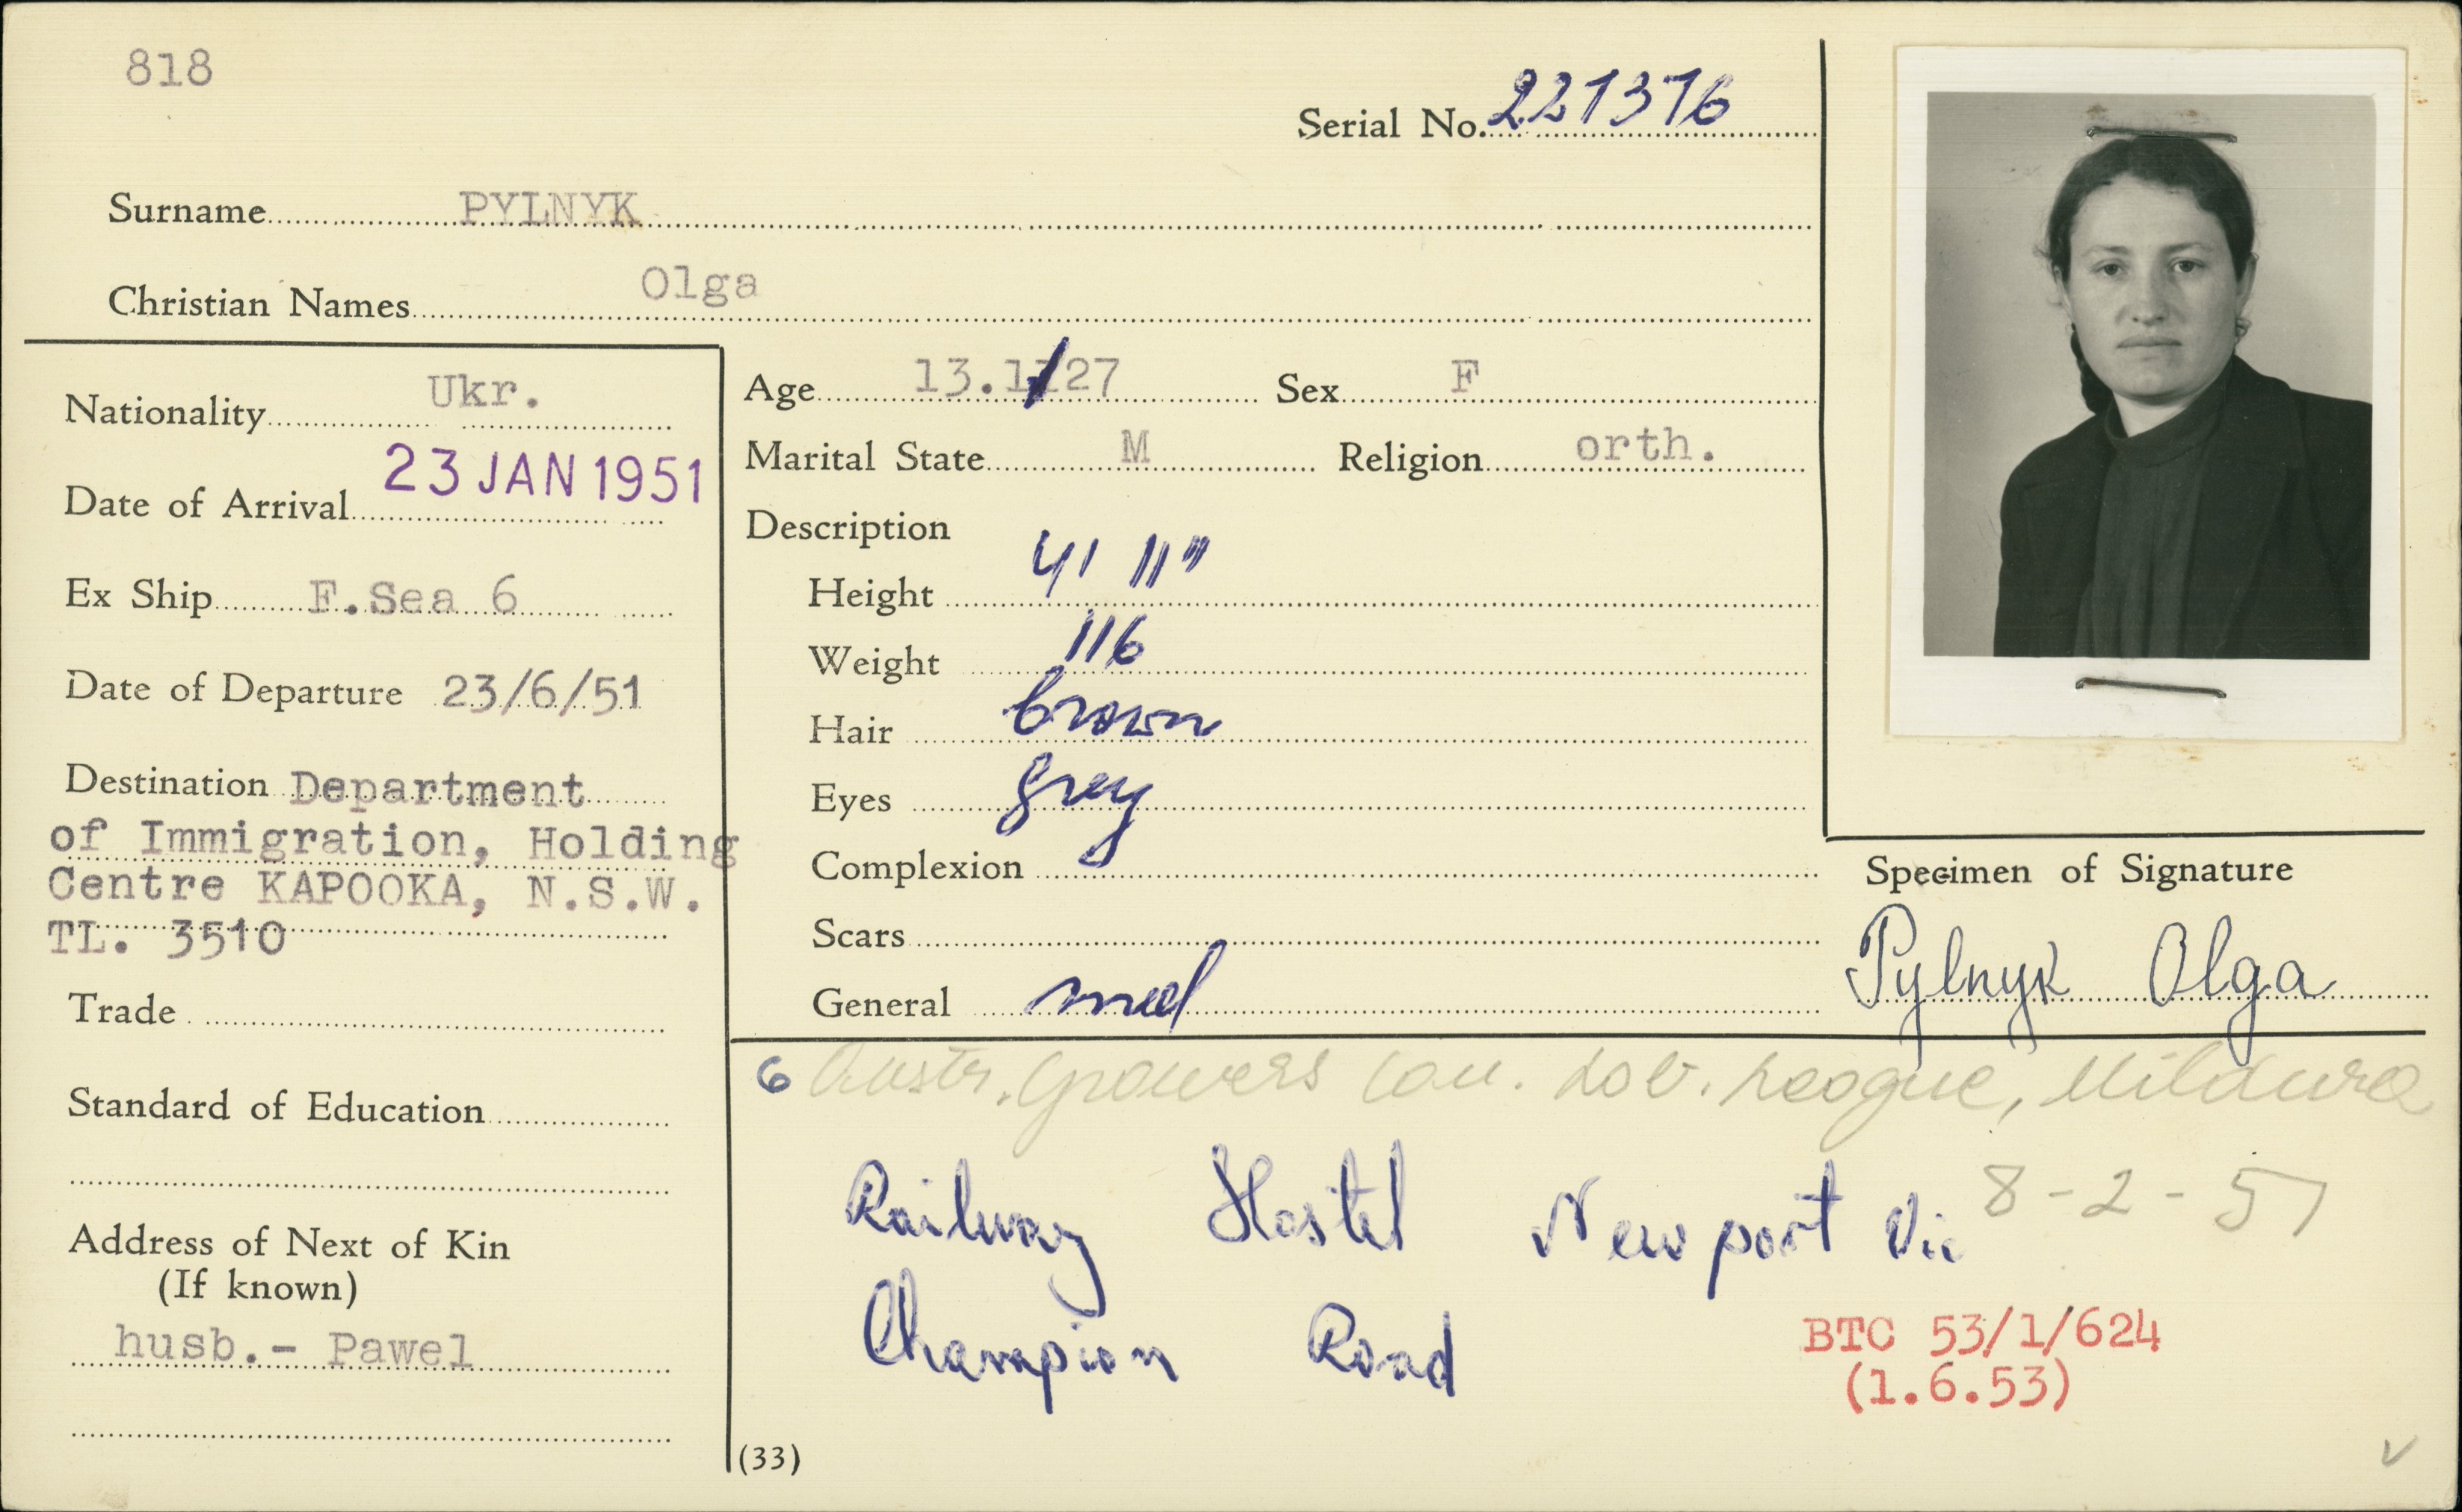 818
Serial No. 221376
Surname PYLNYK
Christian Names Olga
Nationality Ukr.
Date of Arrival 23 JAN 1951
Ex Ship F.Sea 6
Date of Departure 23/6/51
Destination Department
of Immigration, Holding
Centre KAPOOKA, N.S.W.
TL. 3510
Trade
Standard of Education
Address of Next of Kin
(If known)
husb.- Pawel
Age 13.1/27 Sex F
Marital State M Religion orth.
Description
Height 4' 11"
Weight 116
Hair brown
Eyes grey
Complexion
Scars
General med
Specimen of Signature
Pylnyk Olga
6 Austr. Growers Lab. League, Mildura
8-2-51
Railway Hostel Newport Vic
Champion Road
BTC 53/1/624
(1.6.53)
(33)